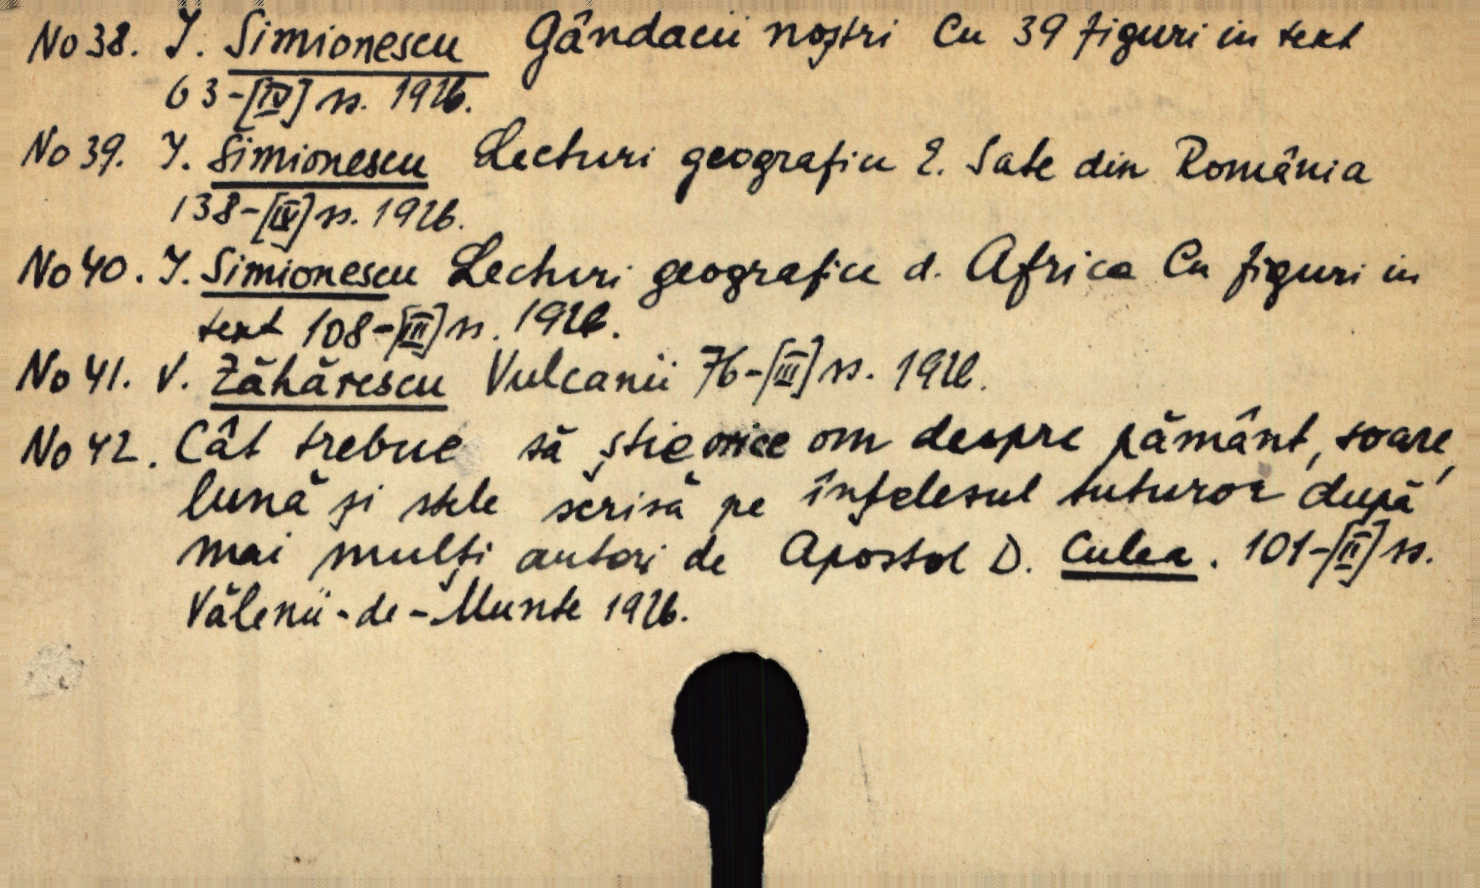 No 38. I. Simionescu Gândacii noștri Cu 39 figuri in text
63-[IV] ss. 1926.
No 39. I. Simionescu Lecturi geografice 2. Sate din România
138-[IV] ss. 1926.
No 40. I. Simionescu Lecturi geografice d. Africa Cu figuri in
text 108-[III] ss. 1926.
No 41. V. Zăhărescu Vulcanii 76-[III] ss. 1926.
No 42. Cât trebue să știe orice om despre pământ, soare,
lună și stele scrisă pe înțelesul tuturor după
mai mulți autori de Apostol D. Culea. 101-[II] ss.
Vălenii-de-Munte 1926.